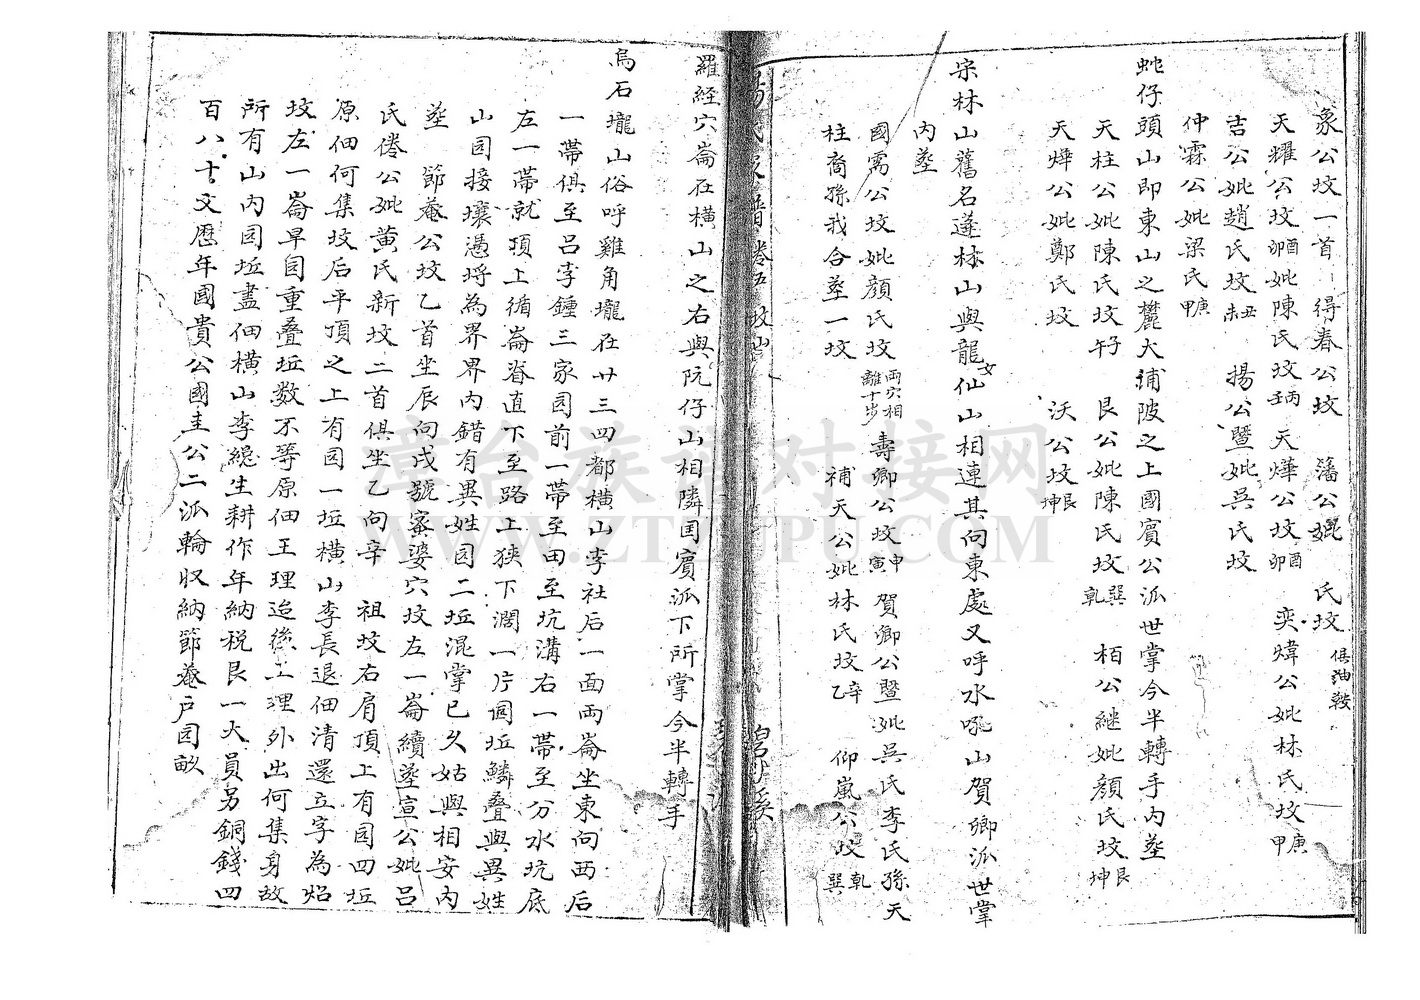 象公坟一首 得春公坟 藩公妣 氏坟俱油鞍
天耀公坟酉卯妣陳氏坟丙 天燁公坟酉卯 奕煒公妣林氏坟庚甲
吉公妣趙氏坟丑未 揚公暨妣吳氏坟
仲霖公妣梁氏庚甲
蛇仔頭山即東山之麓大浦陂之上國賓公派世掌今半轉手內塟
天柱公妣陳氏坟子午 艮公妣陳氏坟巽乾 栢公継妣顏氏坟艮坤
天燁公妣鄭氏坟 沃公坟艮坤
宋林山舊名逢林山與龍女仙山相連其向東處又呼水吼山賀卿派世掌
內塟
國寯公坟妣顏氏坟兩穴相離十步 壽卿公坟申寅 賀卿公暨妣吳氏李氏孫天
柱裔孫我合塟一坟 補天公妣林氏坟辛乙 仰嵐公坟乾巽
楊氏族譜 卷五 坟山
碧溪
羅經穴崙在橫山之右與阮仔山相隣国賓派下所掌今半轉手
烏石壠山俗呼雞角壠在廿三四都橫山李社后一面兩崙坐東向西后
一帶俱至呂李鍾三家园前一帶至田至坑溝右一帶至分水坑底
左一帶就頂上循崙脊直下至路上狹下濶一片园坵鱗叠與異姓
山园接壤憑埒為界界內錯有異姓园二坵混掌已久姑與相安內
塟 節菴公坟乙首坐辰向戌號寀婆穴坟左一崙續塟宣公妣呂
氏倦公妣黃氏新坟二首俱坐乙向辛 祖坟右肩頂上有园四坵
原佃何集坟后平頂之上有园一坵橫山李長退佃清還立字為炤
坟左一崙早园重叠坵数不等原佃王理迨後王理外出何集身故
所有山內园坵盡佃橫山李纔生耕作年納税艮一大員另銅錢四
百八十文歷年國貴公國圭公二派輪収納節菴戶园畝